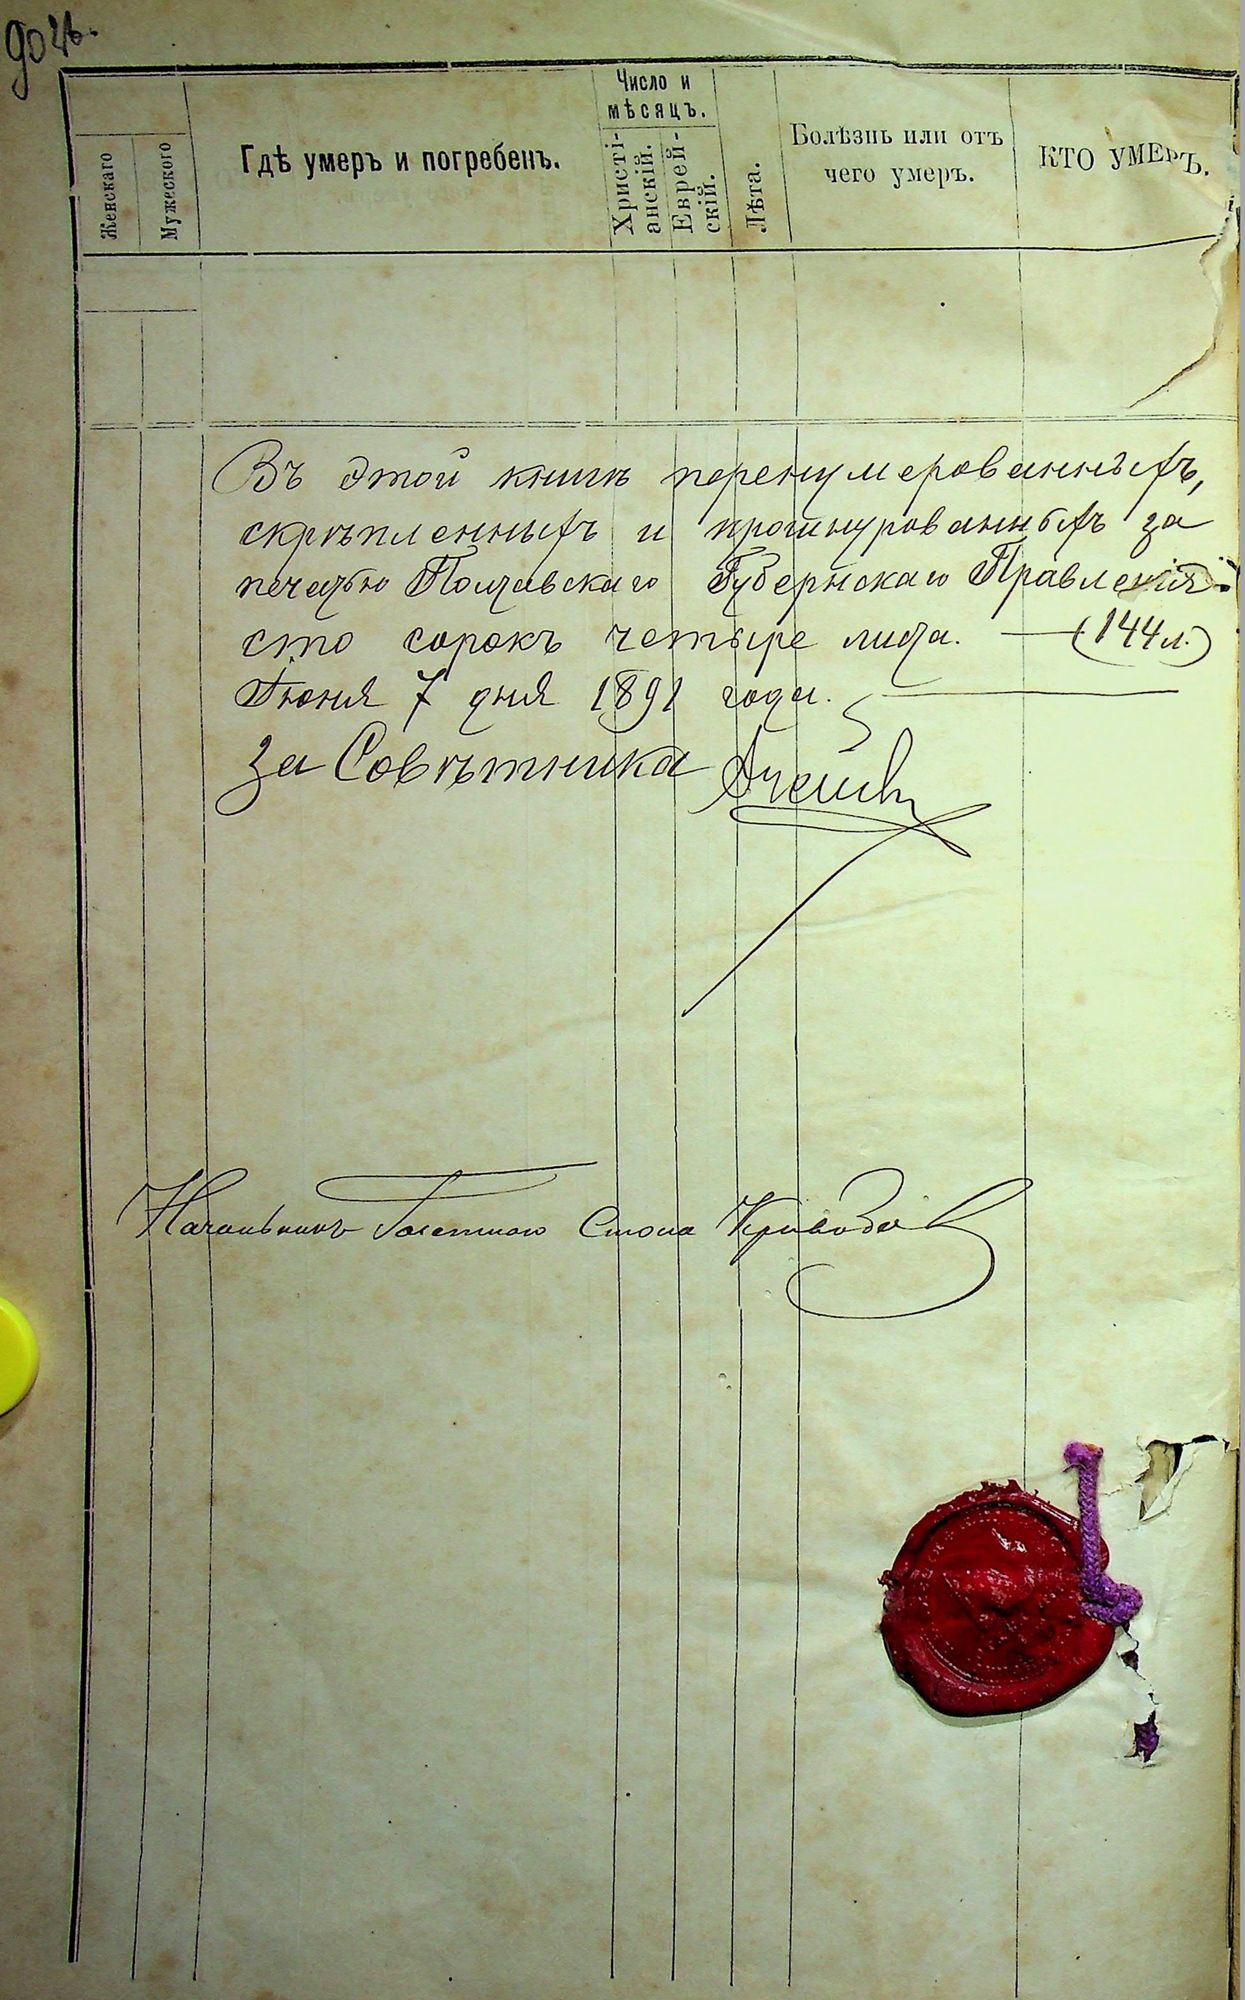 дочь.
Женскаго
Мужескаго
Гдѣ умеръ и погребенъ.
Число и
мѣсяцъ.
Христі-
анскій.
Еврей-
скій.
Лѣта.
Болѣзнь или отъ
чего умеръ.
КТО УМЕРЪ.
Въ этой книгѣ перенумерованныхъ,
скрѣпленныхъ и прошнурованныхъ за
печатью Полтавскаго Губернскаго Правленія
сто сорокъ четыре листа. — (144 л.)
Іюня 7 дня 1891 года.
За Совѣтника
Начальникъ Газетнаго Стола